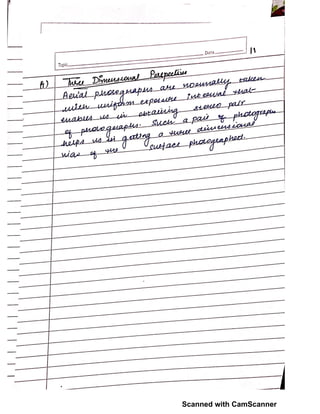 Date 11
Topic
h) Three Dimensional Perspective
Aerial photographs are normally taken
with uniform exposure interval that
enables us in obtaining stereo pair
of photographs. Such a pair of photographs
helps us in getting a three dimensional
view of the surface photographed.
Scanned with CamScanner